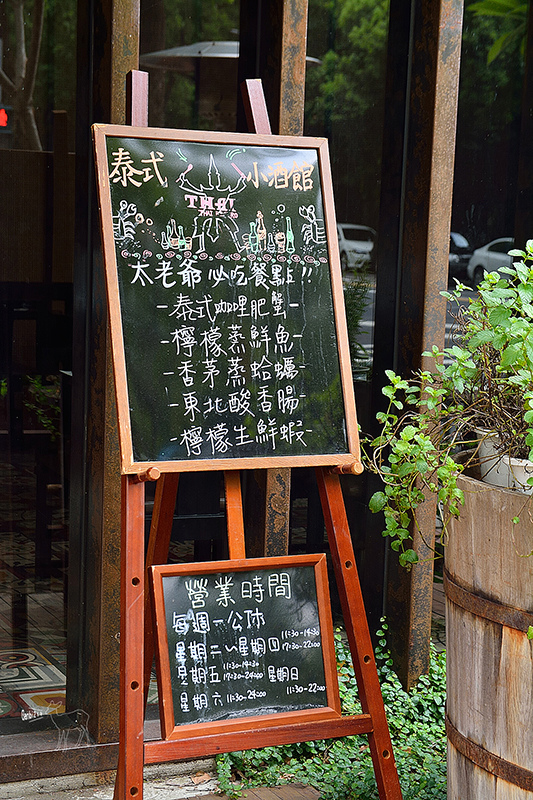 泰式 小酒館
THAI
太老爺 必吃餐點!!
-泰式咖哩肥蟹-
-檸檬蒸鮮魚-
-香茅蒸蛤蠣-
-東北酸香腸-
-檸檬生鮮蝦-
營業時間
每週一公休
星期二~星期四 11:30-14:30 17:30-22:00
星期五 11:30-14:30 17:30-24:00
星期六 11:30-24:00
星期日 11:30-22:00